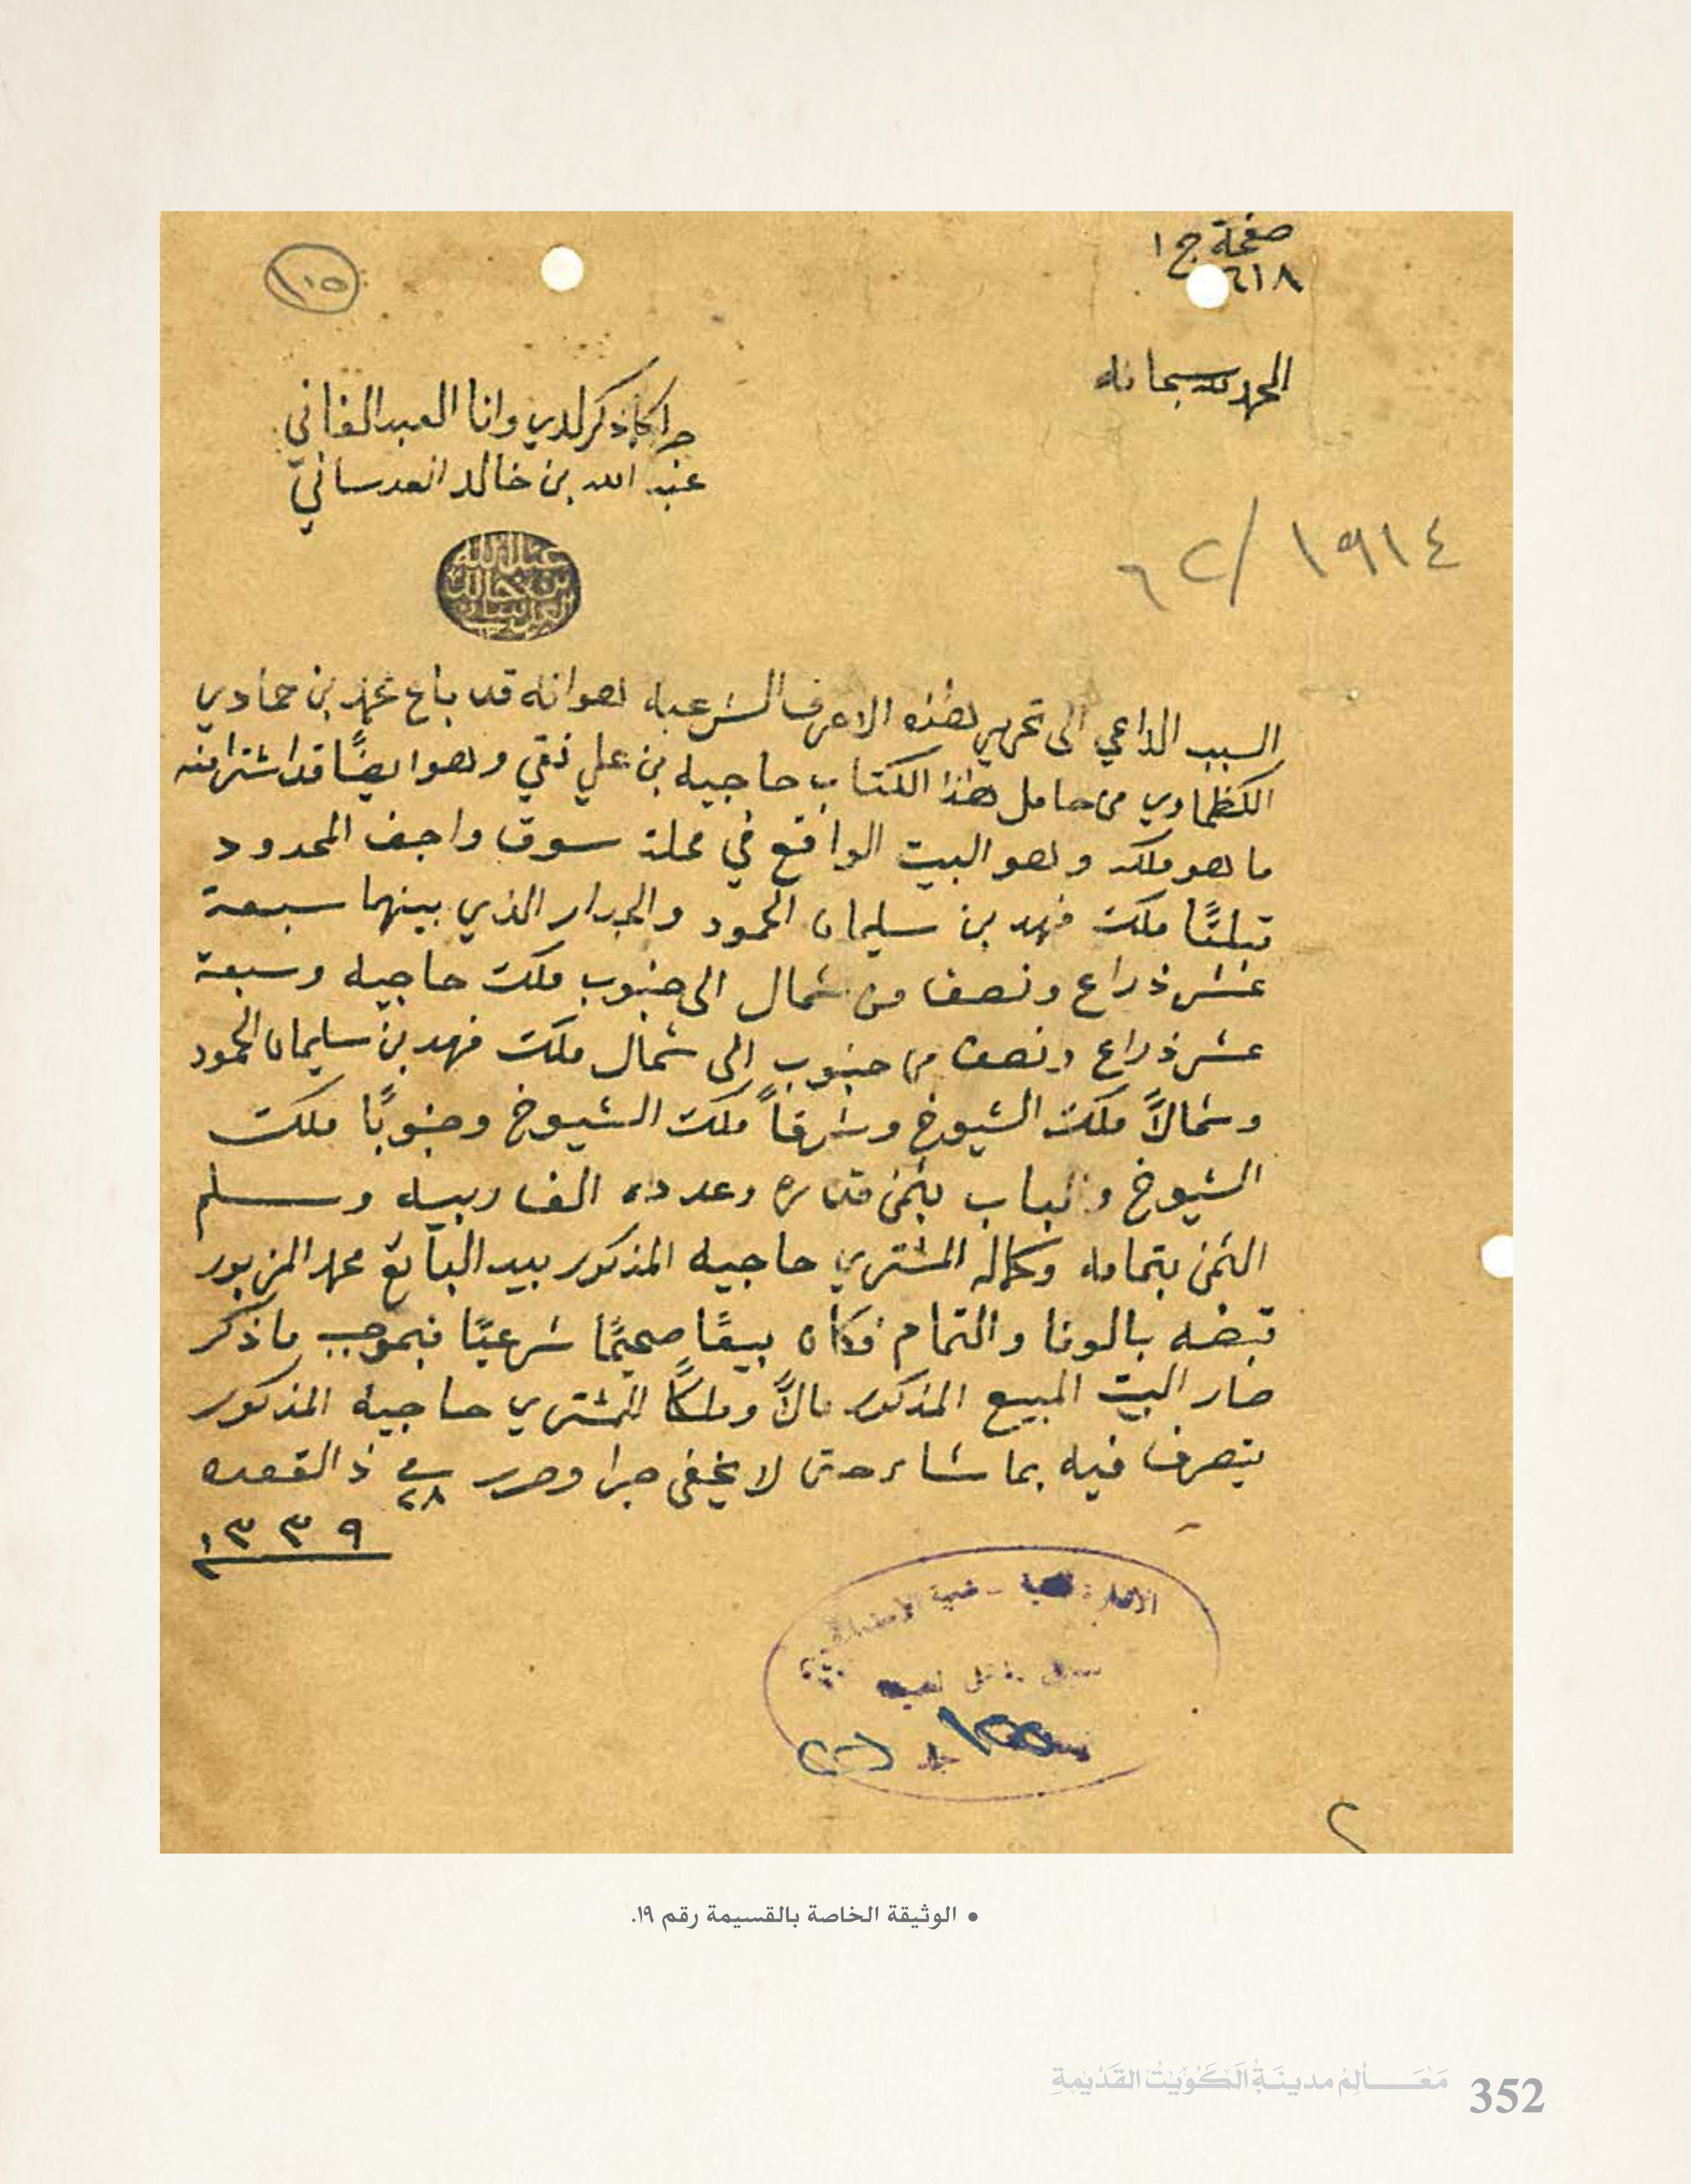 صفحة ج ١
٦١٨
١١٥
الحمد لله سبحانه
جرا كما ذكر لدي وانا العبد الفاني
عبد الله بن خالد العدساني
٦٢/١٩١٤
عبد الله
بن خالد
العدساني
السبب الداعي الى تحرير هذه الاحرف الشرعيه هو انه قد باع محمد بن حمادي
الكظماوي من حامل هذا الكتاب حاجيه بن علي نقي وهو ايضًا قد اشترا منه
ما هو ملكه وهو البيت الواقع في محلة سوق واجف المحدود
قبلتًا ملك فهد بن سليمان الحمود والجدار الذي بينهما سبعة
عشر ذراع ونصف من شمال الى جنوب ملك حاجيه وسبعة
عشر ذراع ونصف من جنوب الى شمال ملك فهد بن سليمان الحمود
وشمالاً ملك الشيوخ وشرقاً ملك الشيوخ وجنوبًا ملك
الشيوخ والباب بثمن قدره وعدده الف ربيه وسلم
الثمن بتمامه وكماله المشتري حاجيه المذكور بيد البائع محمد المزبور
قبضه بالوفا والتمام فكان بيعًا صحيحًا شرعيًا فبموجب ما ذكر
صار البيت المبيع المذكور مالاً وملكًا للمشتري حاجيه المذكور
يتصرف فيه بما شاء حتى لا يخفى جرا وحرر في ٢٨ ذ القعده
١٣٣٩
جلد
٢
• الوثيقة الخاصة بالقسيمة رقم ١٩.
مَعَـــالِمُ مدينَةِ الكُوَيْتِ القَدْيمَةِ 352